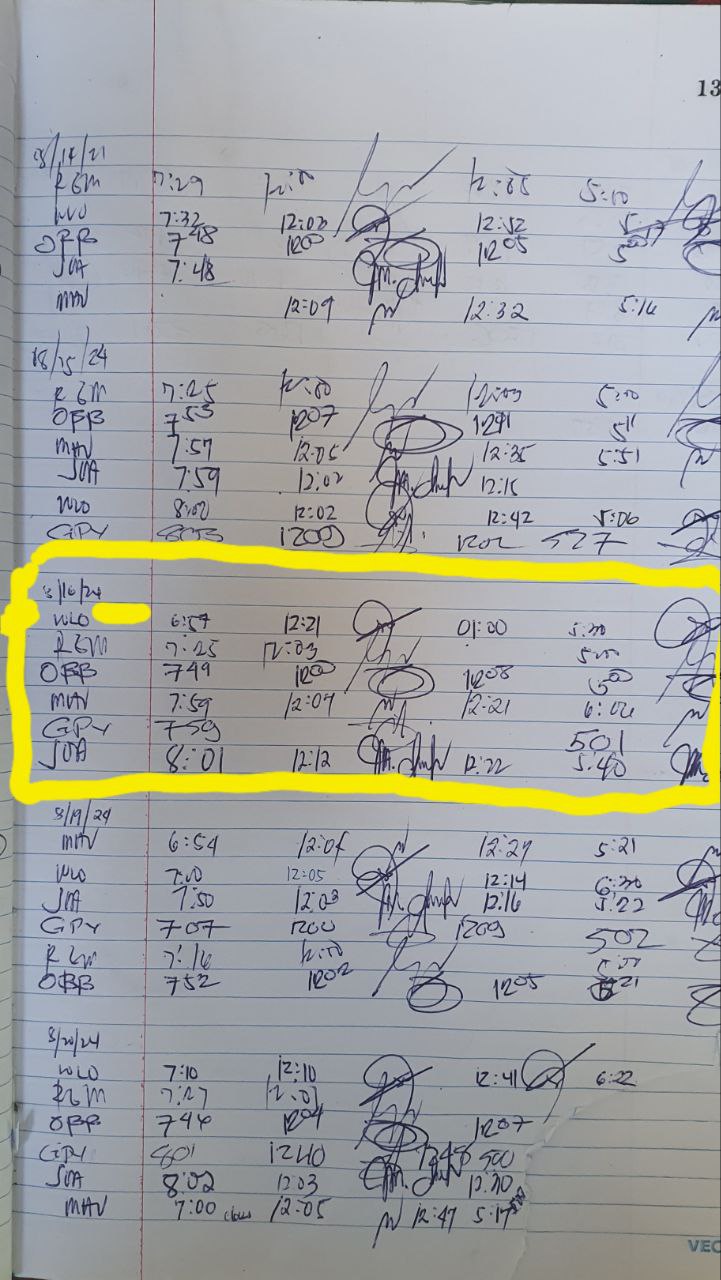 13
8/14/21
RGM 7:29 12:00 12:05 5:10
WLO 7:32 12:02 12:52
OBB 748 1200 1205 500
JOA 7:48
MAV 12:09 12:32 5:16
8/15/24
RGM 7:25 12:00 12:03 5:00
OBB 753 1207 1291 511
MAV 7:57 12:05 12:35 5:51
JOA 7:59 12:02 12:15
WLO 8:00 12:02 12:42 5:06
GPY 803 1200 1202 527
8/16/24
WLO 6:57 12:21 01:00 5:30
RGM 7:25 12:03 5:00
OBB 749 1200 1208 500
MAV 7:59 12:07 12:21 6:06
GPY 759 501
JOA 8:01 12:12 12:22 5:40
8/19/24
MAV 6:54 12:04 12:27 5:21
WLO 7:00 12:05 12:14 6:30
JOA 7:50 12:03 12:16 5:22
GPY 707 1200 1209 502
RGM 7:16 12:00
OBB 752 1202 1205 521
8/20/24
WLO 7:10 12:10 12:41 6:22
RGM 7:27 12:07
OBB 744 1204 1207
GPY 801 1240 1248 500
JOA 8:02 12:03 12:20
MAV 7:00 12:05 12:47 5:17
VEC